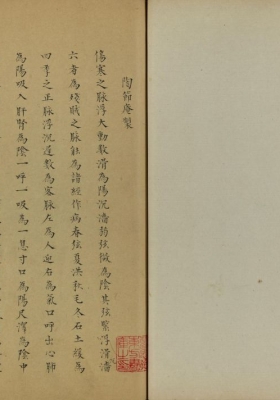 陶節庵製
傷寒之脉浮大動數滑為陽沉濇弱弦微為陰其弦緊浮滑濇
六者為殘賊之脉能為諸經作病春弦夏洪秋毛冬石土緩為
四季之正脉浮沉遲數為客脉左為人迎右為氣口呼出心肺
為陽吸入肝腎為陰一呼一吸為一息寸口為陽尺澤為陰中